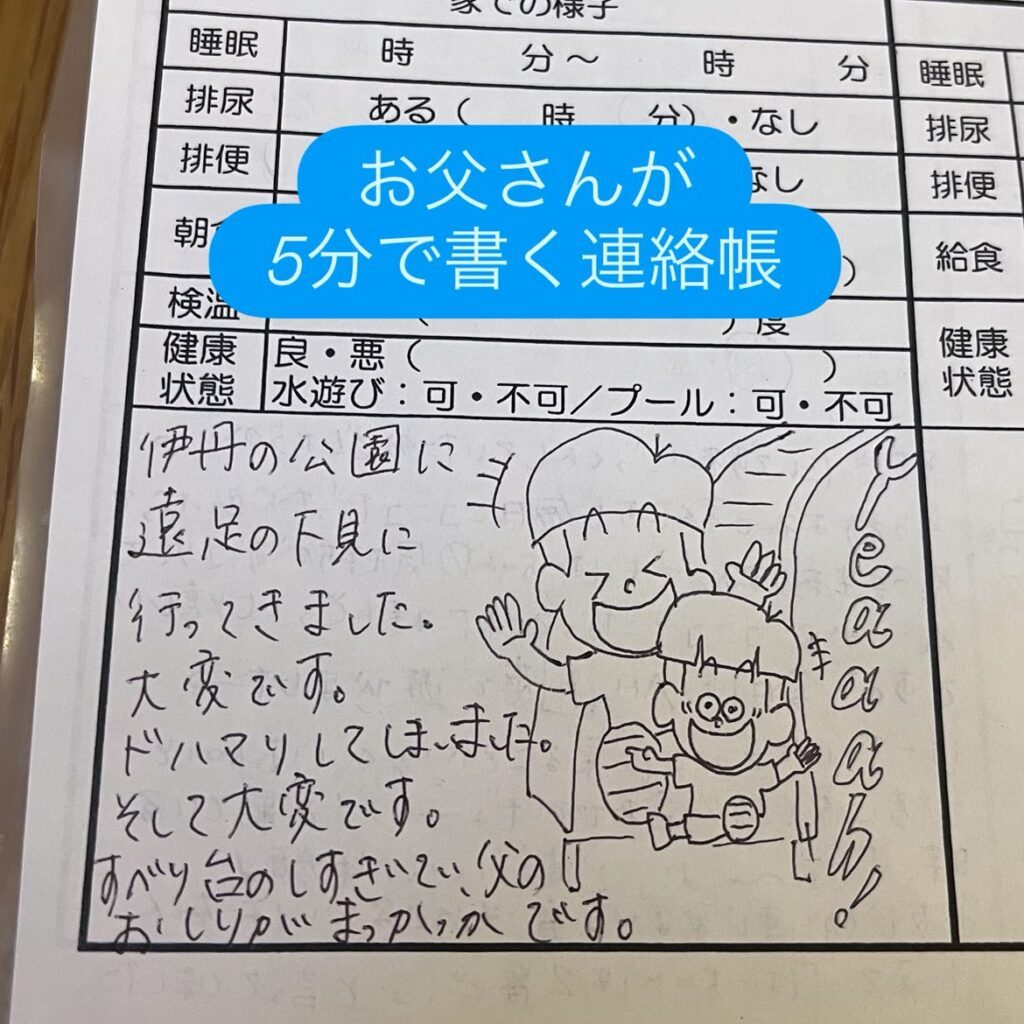 家での様子
睡眠 時 分～ 時 分
排尿 ある（ 時 分）・なし
排便 なし
お父さんが
5分で書く連絡帳
朝食 ）
検温 （ ）度
健康状態 良・悪（ ）
水遊び：可・不可／プール：可・不可
睡眠
排尿
排便
給食
健康
状態
伊丹の公園に
遠足の下見に
行ってきました。
大変です。
ドハマりしてしまいました。
そして大変です。
すべり台のしすぎいで、父の
おしりがまっかっかです。
Yeaaaah!